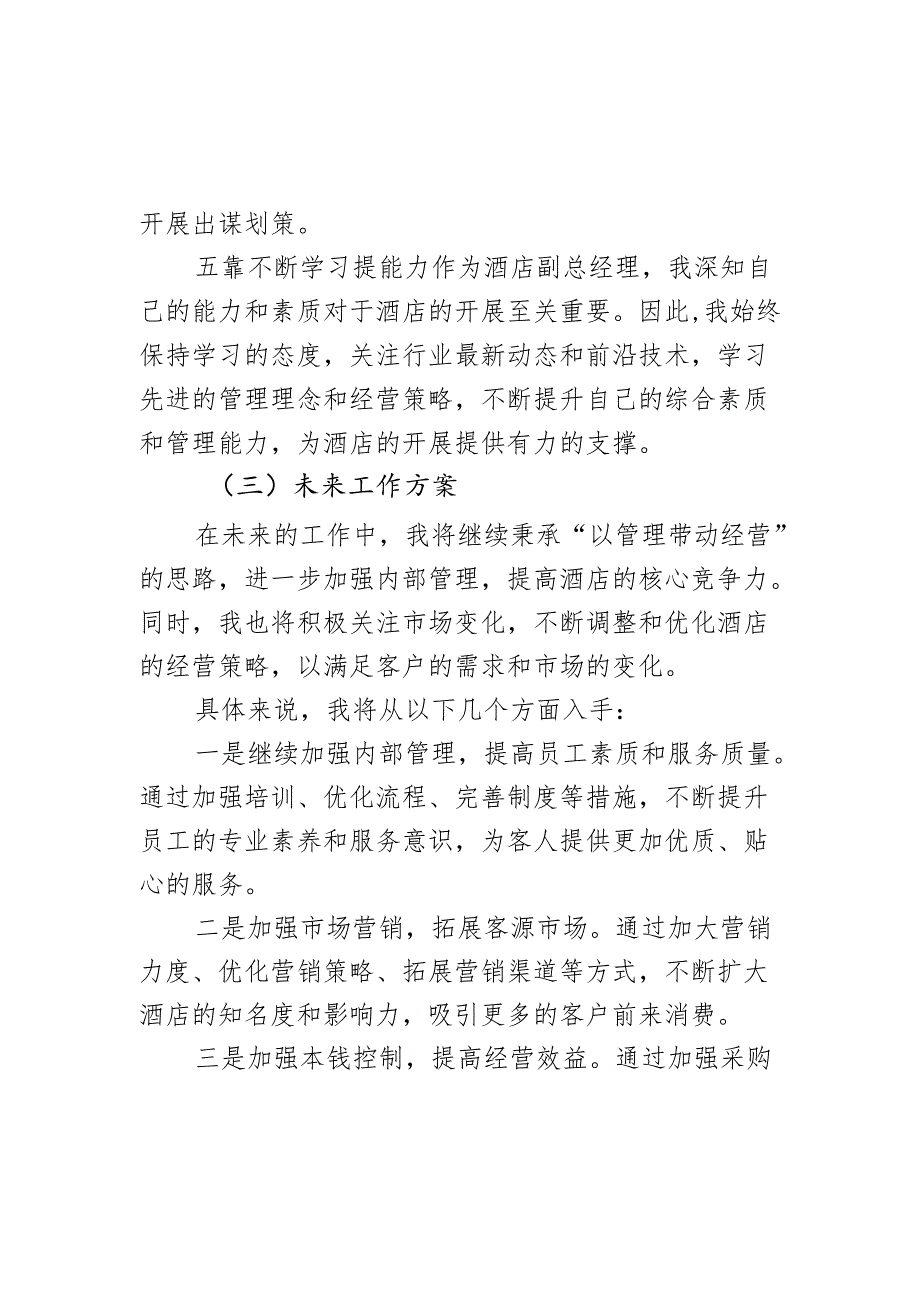 开展出谋划策。
五靠不断学习提能力作为酒店副总经理，我深知自
己的能力和素质对于酒店的开展至关重要。因此,我始终
保持学习的态度，关注行业最新动态和前沿技术，学习
先进的管理理念和经营策略，不断提升自己的综合素质
和管理能力，为酒店的开展提供有力的支撑。
（三）未来工作方案
在未来的工作中，我将继续秉承“以管理带动经营”
的思路，进一步加强内部管理，提高酒店的核心竞争力。
同时，我也将积极关注市场变化，不断调整和优化酒店
的经营策略，以满足客户的需求和市场的变化。
具体来说，我将从以下几个方面入手：
一是继续加强内部管理，提高员工素质和服务质量。
通过加强培训、优化流程、完善制度等措施，不断提升
员工的专业素养和服务意识，为客人提供更加优质、贴
心的服务。
二是加强市场营销，拓展客源市场。通过加大营销
力度、优化营销策略、拓展营销渠道等方式，不断扩大
酒店的知名度和影响力，吸引更多的客户前来消费。
三是加强本钱控制，提高经营效益。通过加强采购